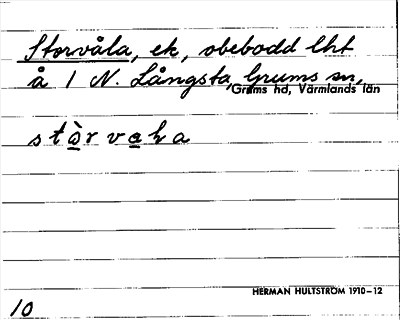 Storvåla, ek, obebodd lht
å 1 N. Långsta, Grums sn,
Grums hd, Värmlands län
HERMAN HULTSTRÖM 1910-12
10